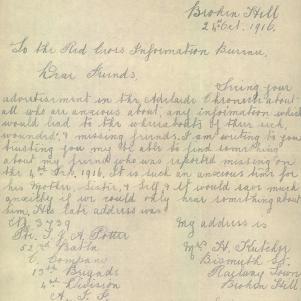 Broken Hill
24th Oct. 1916.
To the Red Cross Information Bureau,
Dear Friends,
Seeing your
advertisement in the Adelaide Chronicle about
all who are anxious about, any information which
would lead to the whereabouts of their sick,
wounded, & missing friends. I am writing to you
trusting you may be able to find something
about my friend who was reported missing on
the 4th 1916. It is such an anxious time for
his Mother, Sister, & Self, & it would save much
anxiety if we could only hear something about
him. His late address was
No 3739
Pte. T. Potter
52nd Battn
C. Company
13th Brigade
4th Division
A. I. F.
My address is
H.
Bismuth St.
Railway Town
Broken Hill